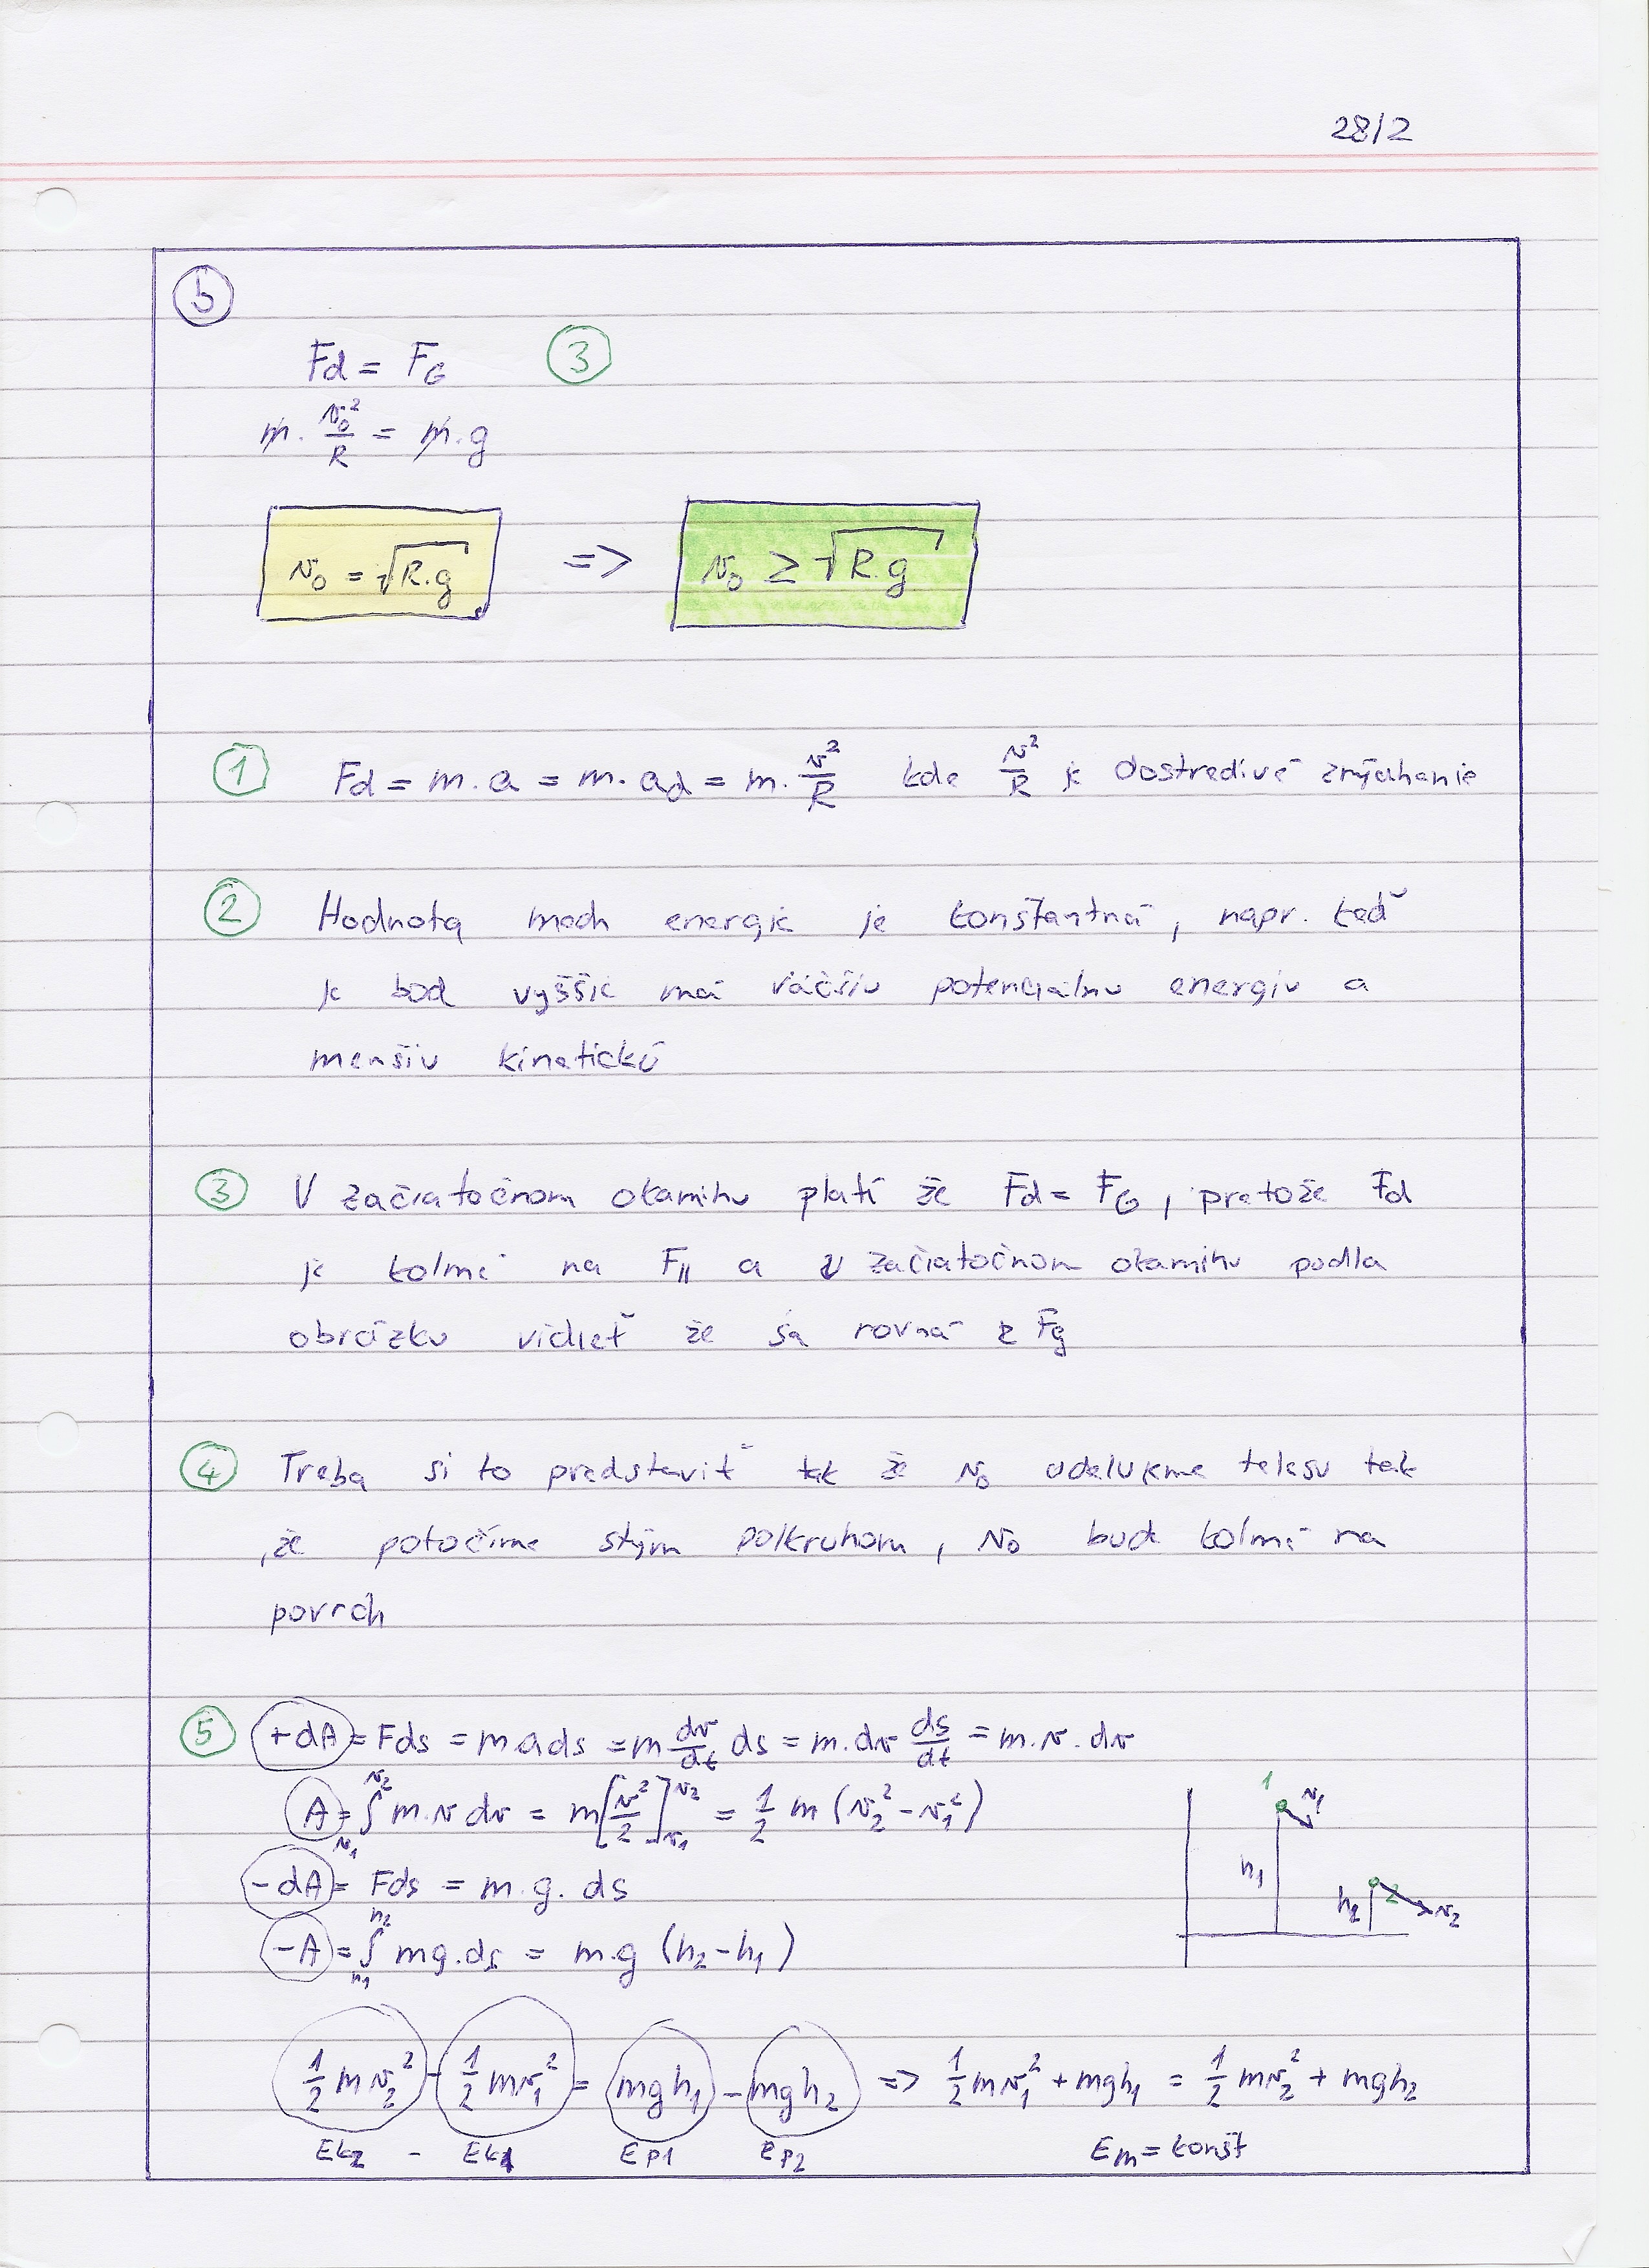 28/2
b
Fd = FG 3
m · v₀²/R = m · g
v₀ = √R.g => v₀ ≥ √R.g
1 Fd = m . a = m . ad = m . v²/R kde v²/R je dostredivé zrýchlenie
2 Hodnota mech energie je konštantná, napr. keď
je bod vyššie má väčšiu potenciálnu energiu a
menšiu kinetickú
3 V začiatočnom okamihu platí že Fd = FG, pretože Fd
je kolmé na F|| a v začiatočnom okamihu podla
obrázku vidieť že sa rovná z Fg
4 Treba si to predstaviť tak že v₀ udelujeme telesu tak
, že potočíme stým polkruhom, v₀ bude kolmé na
povrch
5 +dA = Fds = m a ds = m dv/dt ds = m . dv ds/dt = m . v . dv
A = ∫v₁v₂ m . v dv = m[v²/2]v₁v₂ = 1/2 m (v₂² - v₁²)
-dA = Fds = m . g . ds
-A = ∫h₁h₂ mg . ds = m.g (h₂ - h₁)
1 v₁
h₁
h₂ 2 v₂
1/2 mv₂² - 1/2 mv₁² = mgh₁ - mgh₂ => 1/2 mv₁² + mgh₁ = 1/2 mv₂² + mgh₂
Ek2 - Ek1 Ep1 Ep2 Em = konšt